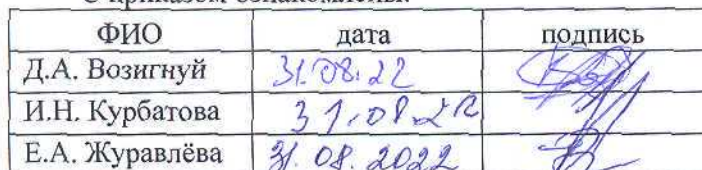 С приказом ознакомлены:
ФИО дата подпись
Д.А. Возигнуй 31.08.22
И.Н. Курбатова 31.08.22
Е.А. Журавлёва 31.08.2022